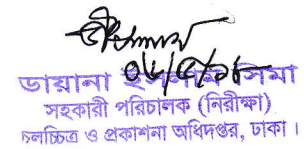 ০৬/৫/১৮
ডায়ানা ইসলাম সিমা
সহকারী পরিচালক (নিরীক্ষা)
চলচ্চিত্র ও প্রকাশনা অধিদপ্তর, ঢাকা।